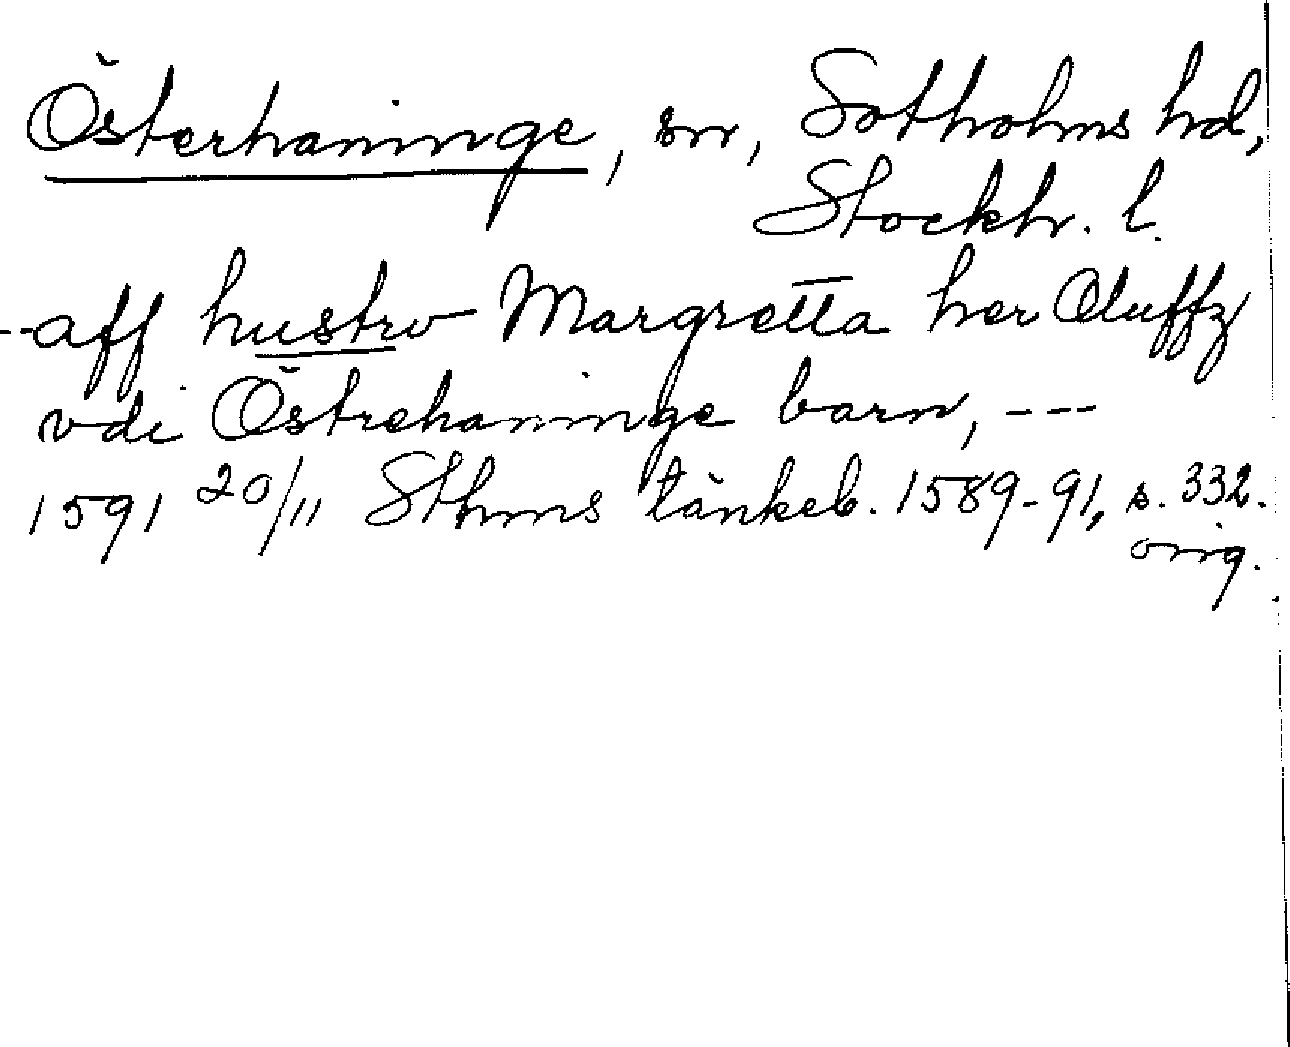 Österhaninge, sn, Sotholms hd,
Stockh. l.
--aff hustrv Margretta her Oluffz
vdi Östrehaninge barn, ---
1591 20/11 Sthms tänkeb. 1589-91, s. 332.
orig.